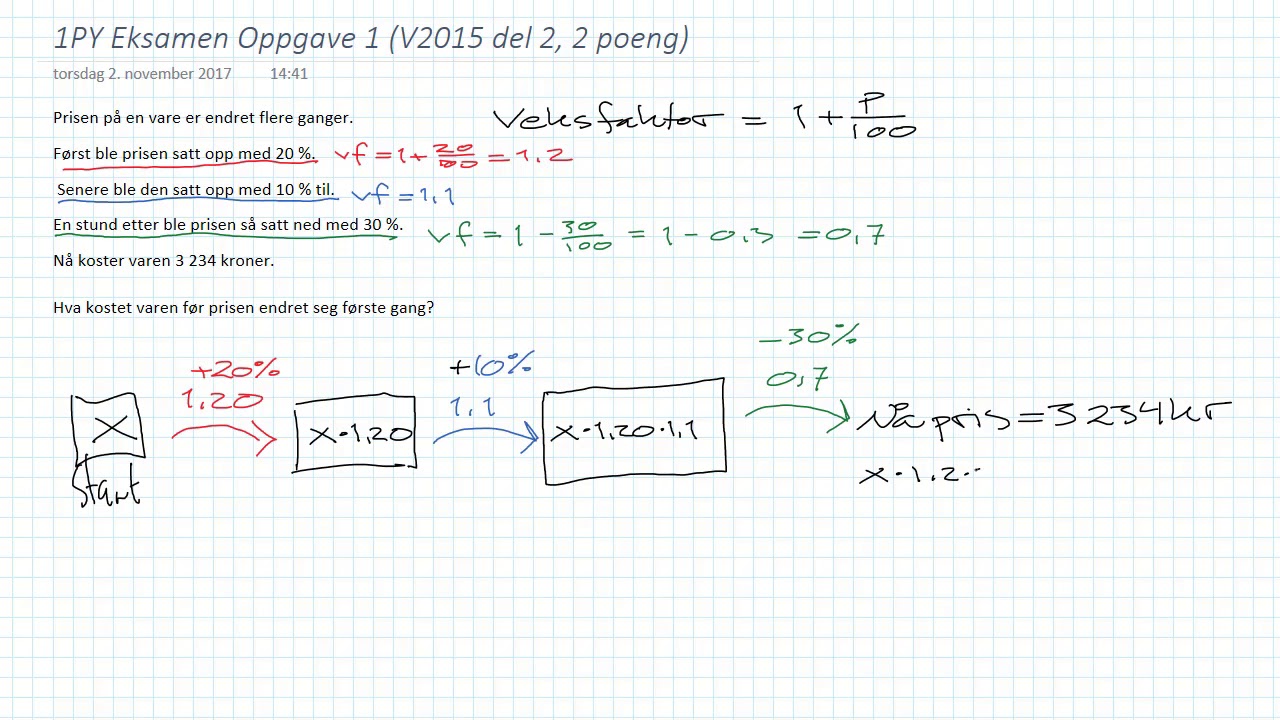 1PY Eksamen Oppgave 1 (V2015 del 2, 2 poeng)
torsdag 2. november 2017 14:41
Prisen på en vare er endret flere ganger.
Veksfaktor = 1 + P/100
Først ble prisen satt opp med 20 %. vf = 1 + 20/100 = 1,2
Senere ble den satt opp med 10 % til. vf = 1,1
En stund etter ble prisen så satt ned med 30 %. vf = 1 - 30/100 = 1 - 0,3 = 0,7
Nå koster varen 3 234 kroner.
Hva kostet varen før prisen endret seg første gang?
+20% +10% -30%
1,20 1,1 0,7
X x·1,20 x·1,20·1,1 Nå pris = 3 234 kr
Start x·1,2·